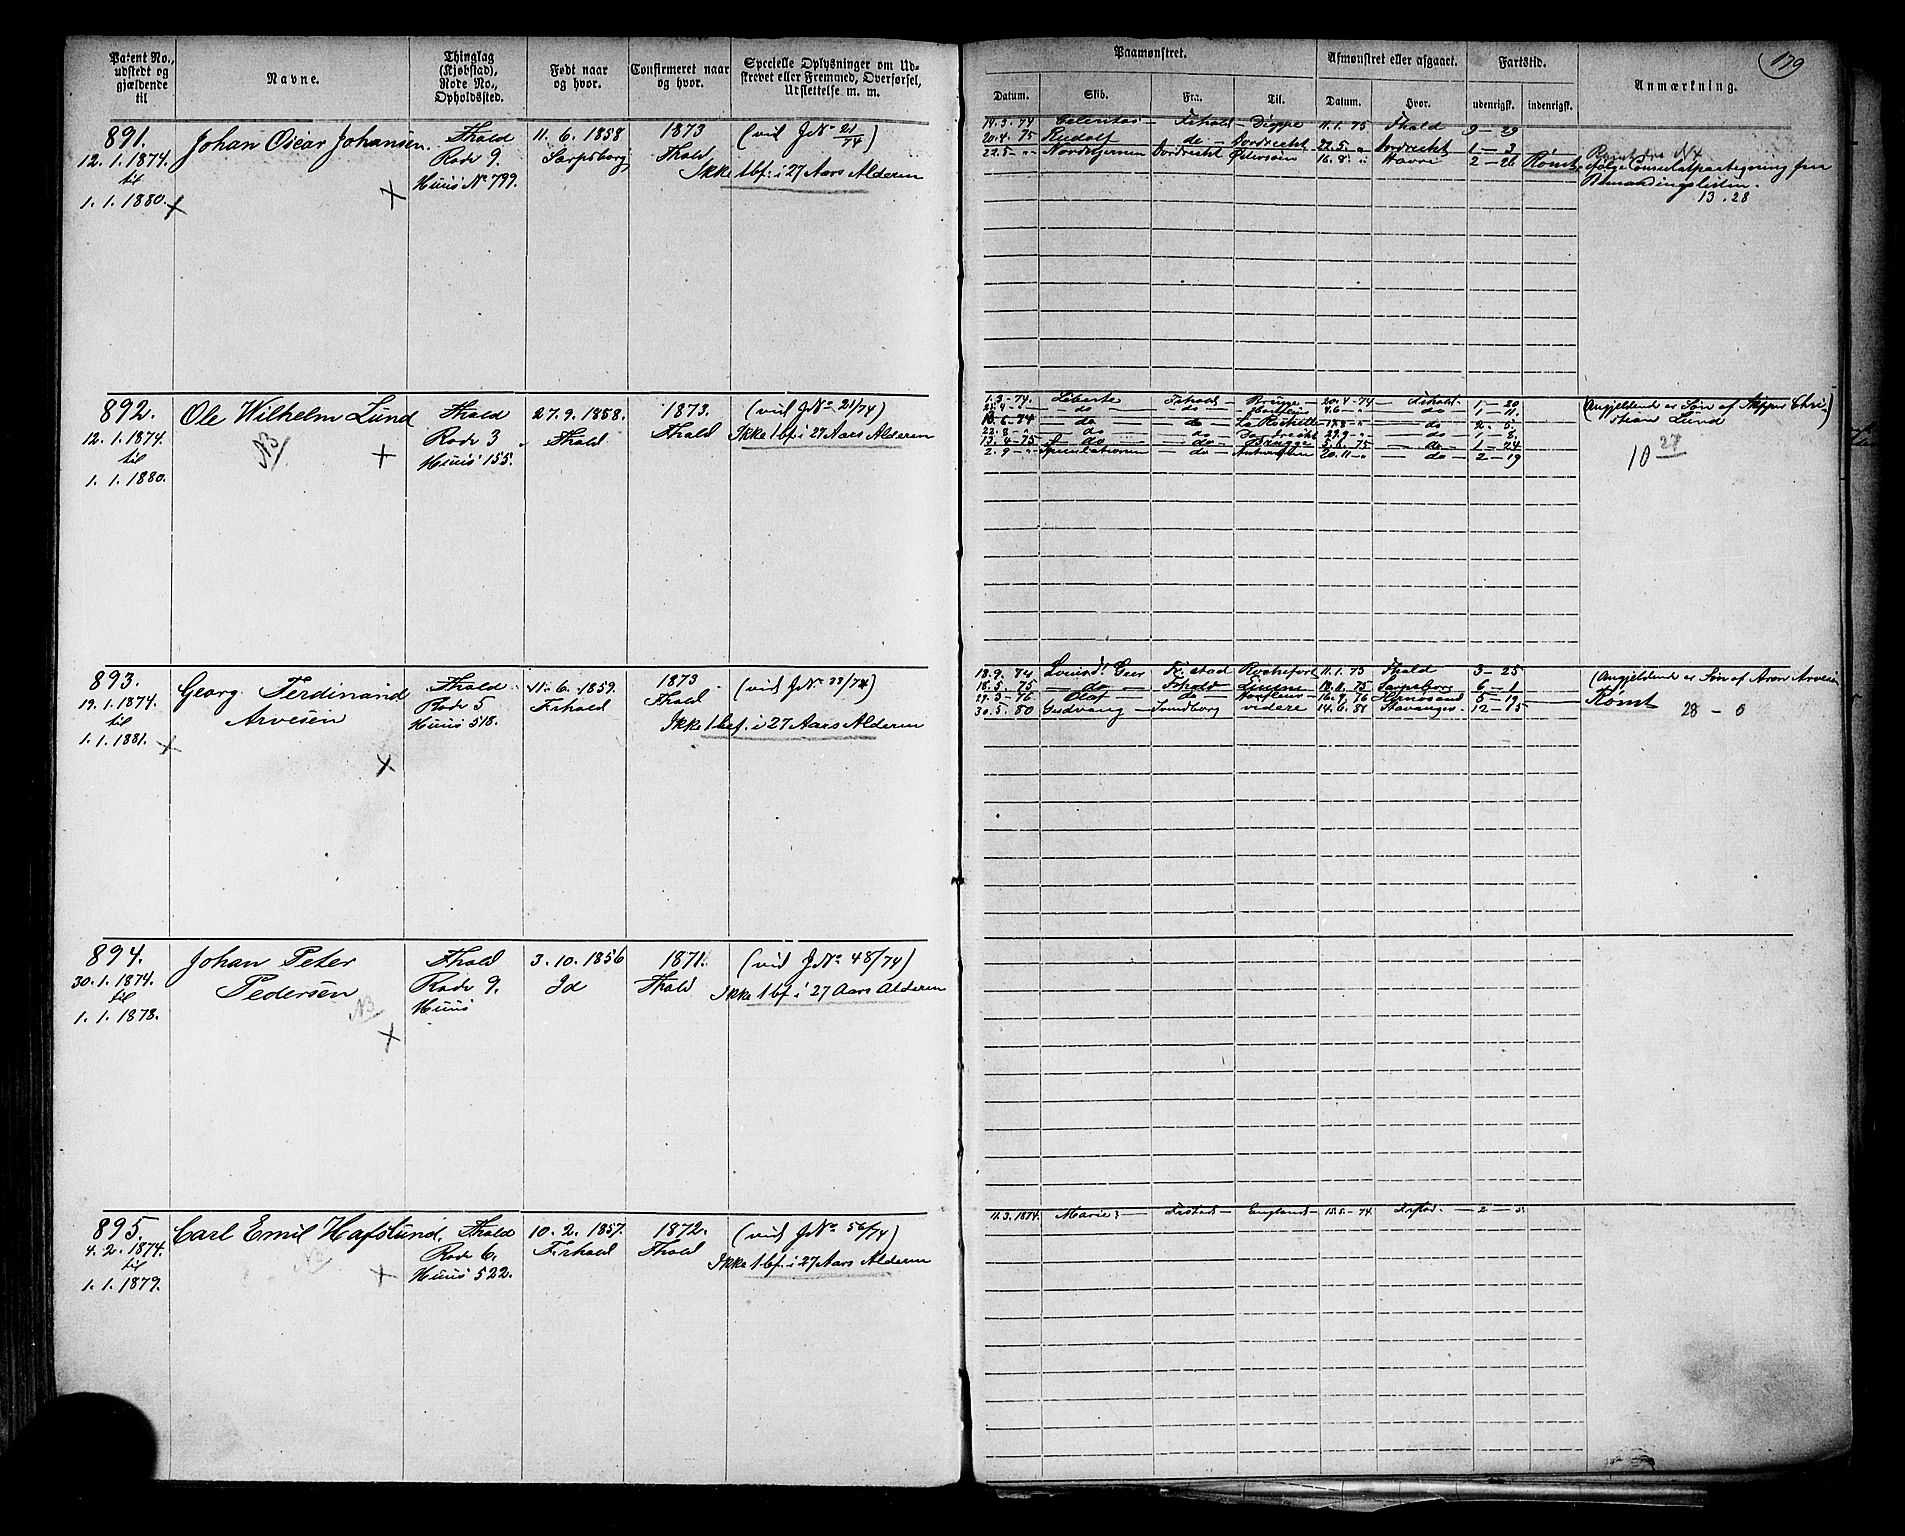 179
Patent No., udstedt og gjældende til
Navne.
Thinglag (Kjøbstad), Rode No., Opholdssted.
Født naar og hvor.
Confirmeret naar og hvor.
Specielle Oplysninger om Udskrevet eller Fremmed, Overførsel, Udslettelse m. m.
Paamønstret.
Afmønstret eller afgaaet.
Fartstid.
Anmærkning.
Datum.
Skib.
Fra.
Til.
Datum.
Hvor.
udenrigsk.
indenrigsk.
891.
12. 1. 1874.
til
1. 1. 1880.
Johan Oscar Johansen.
Fhald
Rode 9.
Huus No 799.
11. 6. 1858
Sarpsborg
1873
Fhald
(vid J No 21/74)
Ikke 1 bf. i 27 Aars Alderen
14.3.74 Celeritas Frhald Dieppe 11.1.75 Fhald 9-29
20.4.75 Rudolf do Dordrecht 22.5 " Dordrecht 1-3
22.5 " Nordstjernen Dordrecht Østersøen 16.8 " Havre 2-26 Rømt
13.28
892.
12. 1. 1874.
til
1. 1. 1880.
Ole Wilhelm Lund
NB
Fhald
Rode 3
Huus 155.
27. 9. 1858.
Fhald
1873.
Fhald
(vid J No 21/74)
Ikke 1 bf. i 27 Aars Alderen
1.3.74. Liberte Frhald Brügge 20.4-74 Frhald 1-20
do do 4.6 - " do 1-11.
10.6-74 do do La Rochelle do 2.5
22.8 - " do do Dordrecht 29.9 - " do 1-8
13.4-75 do do Brügge 5.6.75 do 1-24
2.9 - " Speculationen do Antwerpen 20.11 - " do 2-19
(Angjeldende er Søn af Skipper Christian Lund)
10 27
893.
19. 1. 1874.
til
1. 1. 1881.
Georg Ferdinand
Arvesen
Fhald
Rode 5
Huus 518.
11. 6. 1859.
Frhald
1873
Fhald
(vid J No 33/74)
Ikke 1 bef. i 27 Aars Alderen
18.9.74 Frstad Rochefort 11.1.75 Fhald 3-25
18.5.75 do Frhald 75 Sarpsborg 6-1
12.3-76 Olaf do Harfleur 16.9.76 Hernösand 5-17
30.5.80 Gudvang Sundborg videre 14.6.81 Stavanger 12-15
(Angjeldende er Søn af Aron Arvesen
Rømt 28-0
894.
30. 1. 1874.
til
1. 1. 1878.
Johan Peter
Pedersen
NB
Fhald
Rode 9.
Huus
3. 10. 1856
Id
1871.
Fhald
(vid J No 48/74)
Ikke 1 bf. i 27 Aars Alderen
895.
4. 2. 1874.
til
1. 1. 1879.
Carl Emil Hafslund.
NB
Fhald
Rode 6.
Huus 522.
10. 2. 1857.
Frhald
1872.
Fhald
(vid J No 56/74)
Ikke 1 bf. i 27 Aars Alderen
11.3.1874. Marie Frstad England 15.5-74. Frstad 2-5